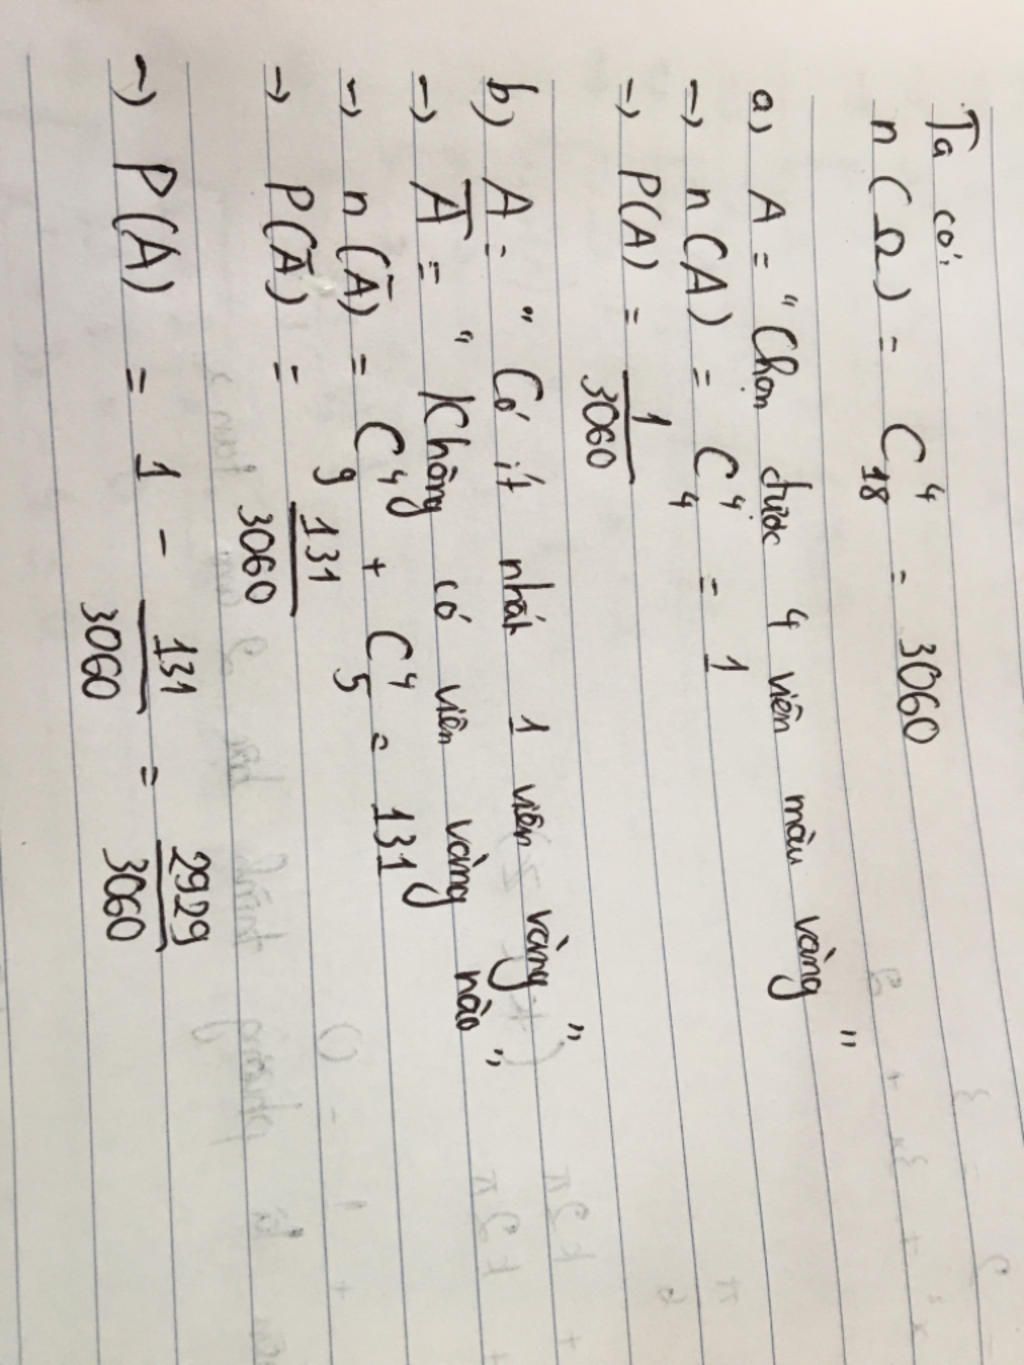 Ta có:
n(Ω) = C₁₈⁴ = 3060
a) A = "Chọn được 4 viên màu vàng"
→ n(A) = C₄⁴ = 1
→ P(A) = 1/3060
b) A = "Có ít nhất 1 viên vàng"
→ A̅ = "Không có viên vàng nào"
→ n(A̅) = C₉⁴ + C₅⁴ = 131
→ P(A̅) = 131/3060
→ P(A) = 1 - 131/3060 = 2929/3060